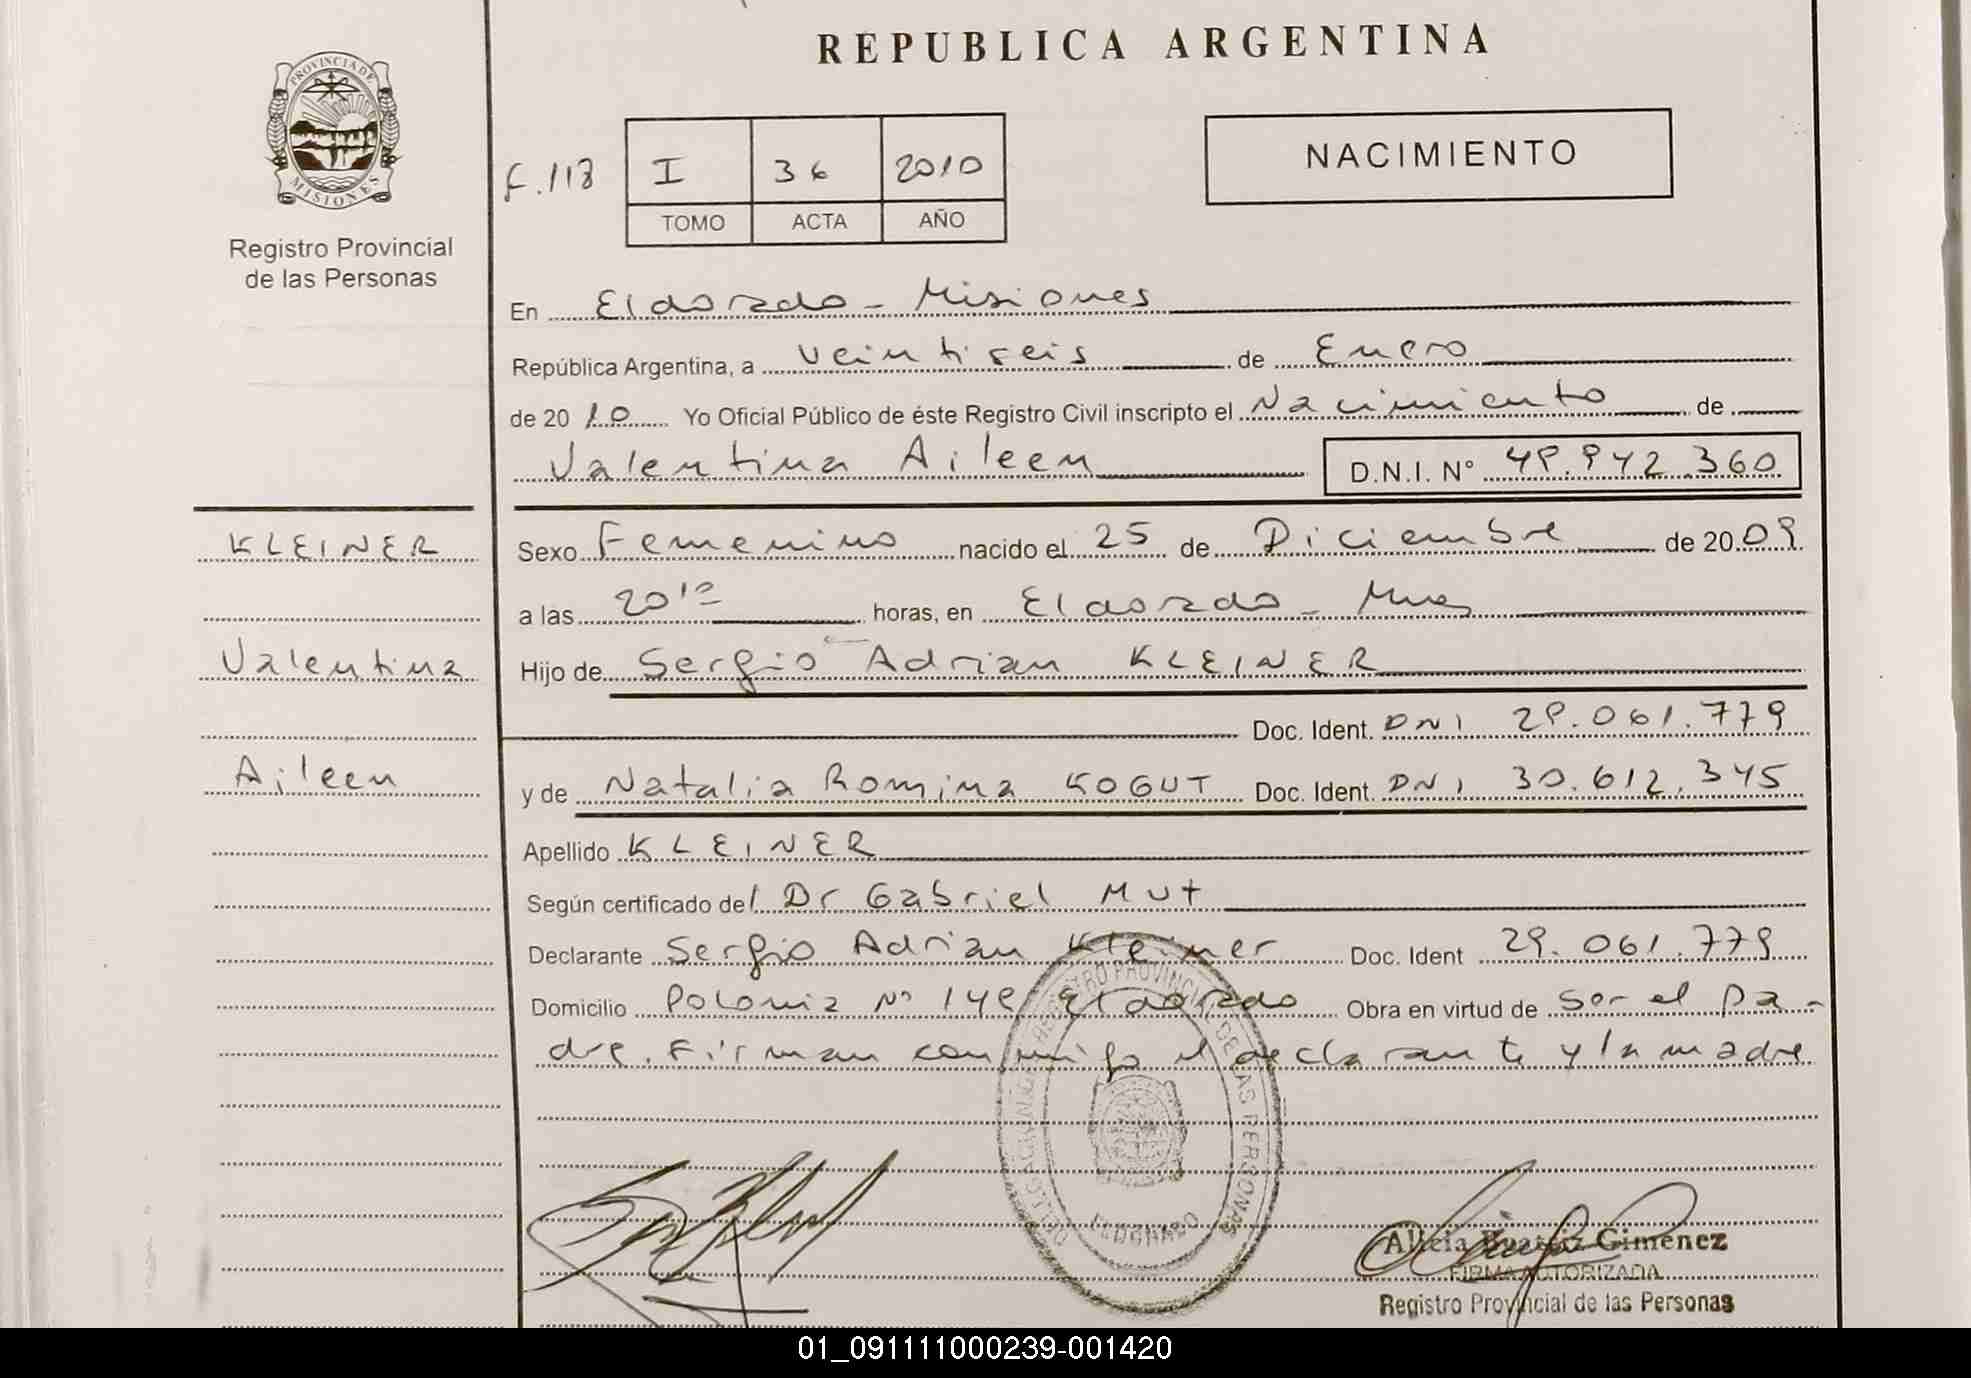 REPUBLICA ARGENTINA
PROVINCIA DE
MISIONES
Registro Provincial
de las Personas
F.118
I 36 2010
TOMO ACTA AÑO
NACIMIENTO
En Eldorado - Misiones
República Argentina, a veintiseis de Enero
de 2010 Yo Oficial Público de éste Registro Civil inscripto el Nacimiento de
Valentina Aileen D.N.I. N° 49.942.360
KLEINER
Sexo Femenino nacido el 25 de Diciembre de 2009
a las 20 12 horas, en Eldorado - Mnes
Valentina
Hijo de Sergio Adrian KLEINER
Doc. Ident. DNI 29.061.779
Aileen
y de Natalia Romina KOGUT Doc. Ident. DNI 30.612.345
Apellido KLEINER
Según certificado del Dr Gabriel Mut
Declarante Sergio Adrian Kleiner Doc. Ident 29.061.779
Domicilio Polonia N° 149 Eldorado Obra en virtud de Ser el Pa-
dre. Firman conmigo el declarante y la madre
REGISTRO PROVINCIAL DE LAS PERSONAS
ELDORADO
Alicia Beatriz Gimenez
FIRMA AUTORIZADA
Registro Provincial de las Personas
01_091111000239-001420